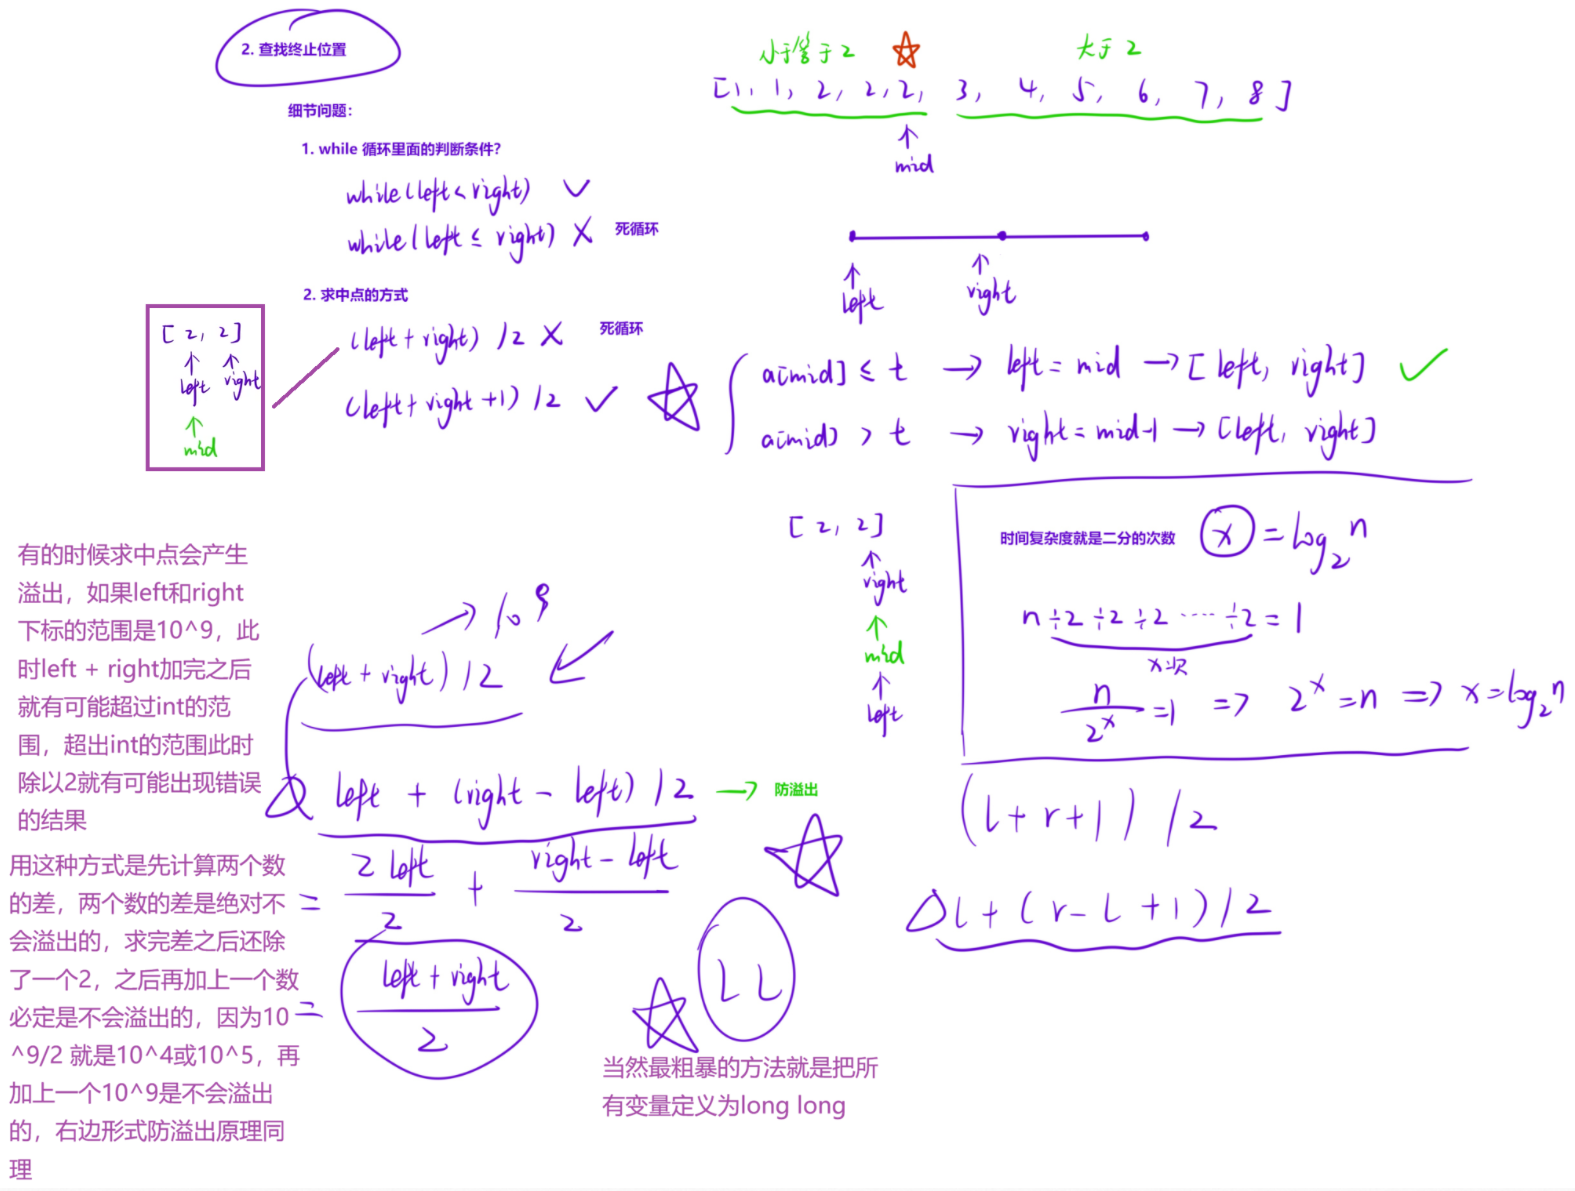 2. 查找终止位置
细节问题：
1. while 循环里面的判断条件？
while(left < right) ✓
while(left ≤ right) X 死循环
2. 求中点的方式
(left + right) / 2 X 死循环
(left + right + 1) / 2 ✓
[ 2, 2 ]
↑ ↑
left right
↑
mid
小于等于 2 ☆ 大于 2
[1, 1, 2, 2, 2, 3, 4, 5, 6, 7, 8 ]
↑
mid
↑ ↑
left right
a[mid] ≤ t → left = mid → [ left, right ] ✓
a[mid] > t → right = mid-1 → [left, right]
[ 2, 2 ]
↑
right
↑
mid
↑
left
时间复杂度就是二分的次数 x = log₂n
n ÷2 ÷2 ÷2 ···· ÷2 = 1
x次
n/2^x = 1 => 2^x = n => x = log₂n
有的时候求中点会产生
溢出，如果left和right
下标的范围是10^9，此
时left + right加完之后
就有可能超过int的范
围，超出int的范围此时
除以2就有可能出现错误
的结果
→ 10^9
(left + right) / 2
left + (right - left) / 2 → 防溢出
= 2left/2 + right - left/2
= left + right/2
用这种方式是先计算两个数
的差，两个数的差是绝对不
会溢出的，求完差之后还除
了一个2，之后再加上一个数
必定是不会溢出的，因为10
^9/2 就是10^4或10^5，再
加上一个10^9是不会溢出
的，右边形式防溢出原理同
理
(l + r + 1) / 2
△ l + (r - l + 1) / 2
☆ LL
当然最粗暴的方法就是把所
有变量定义为long long